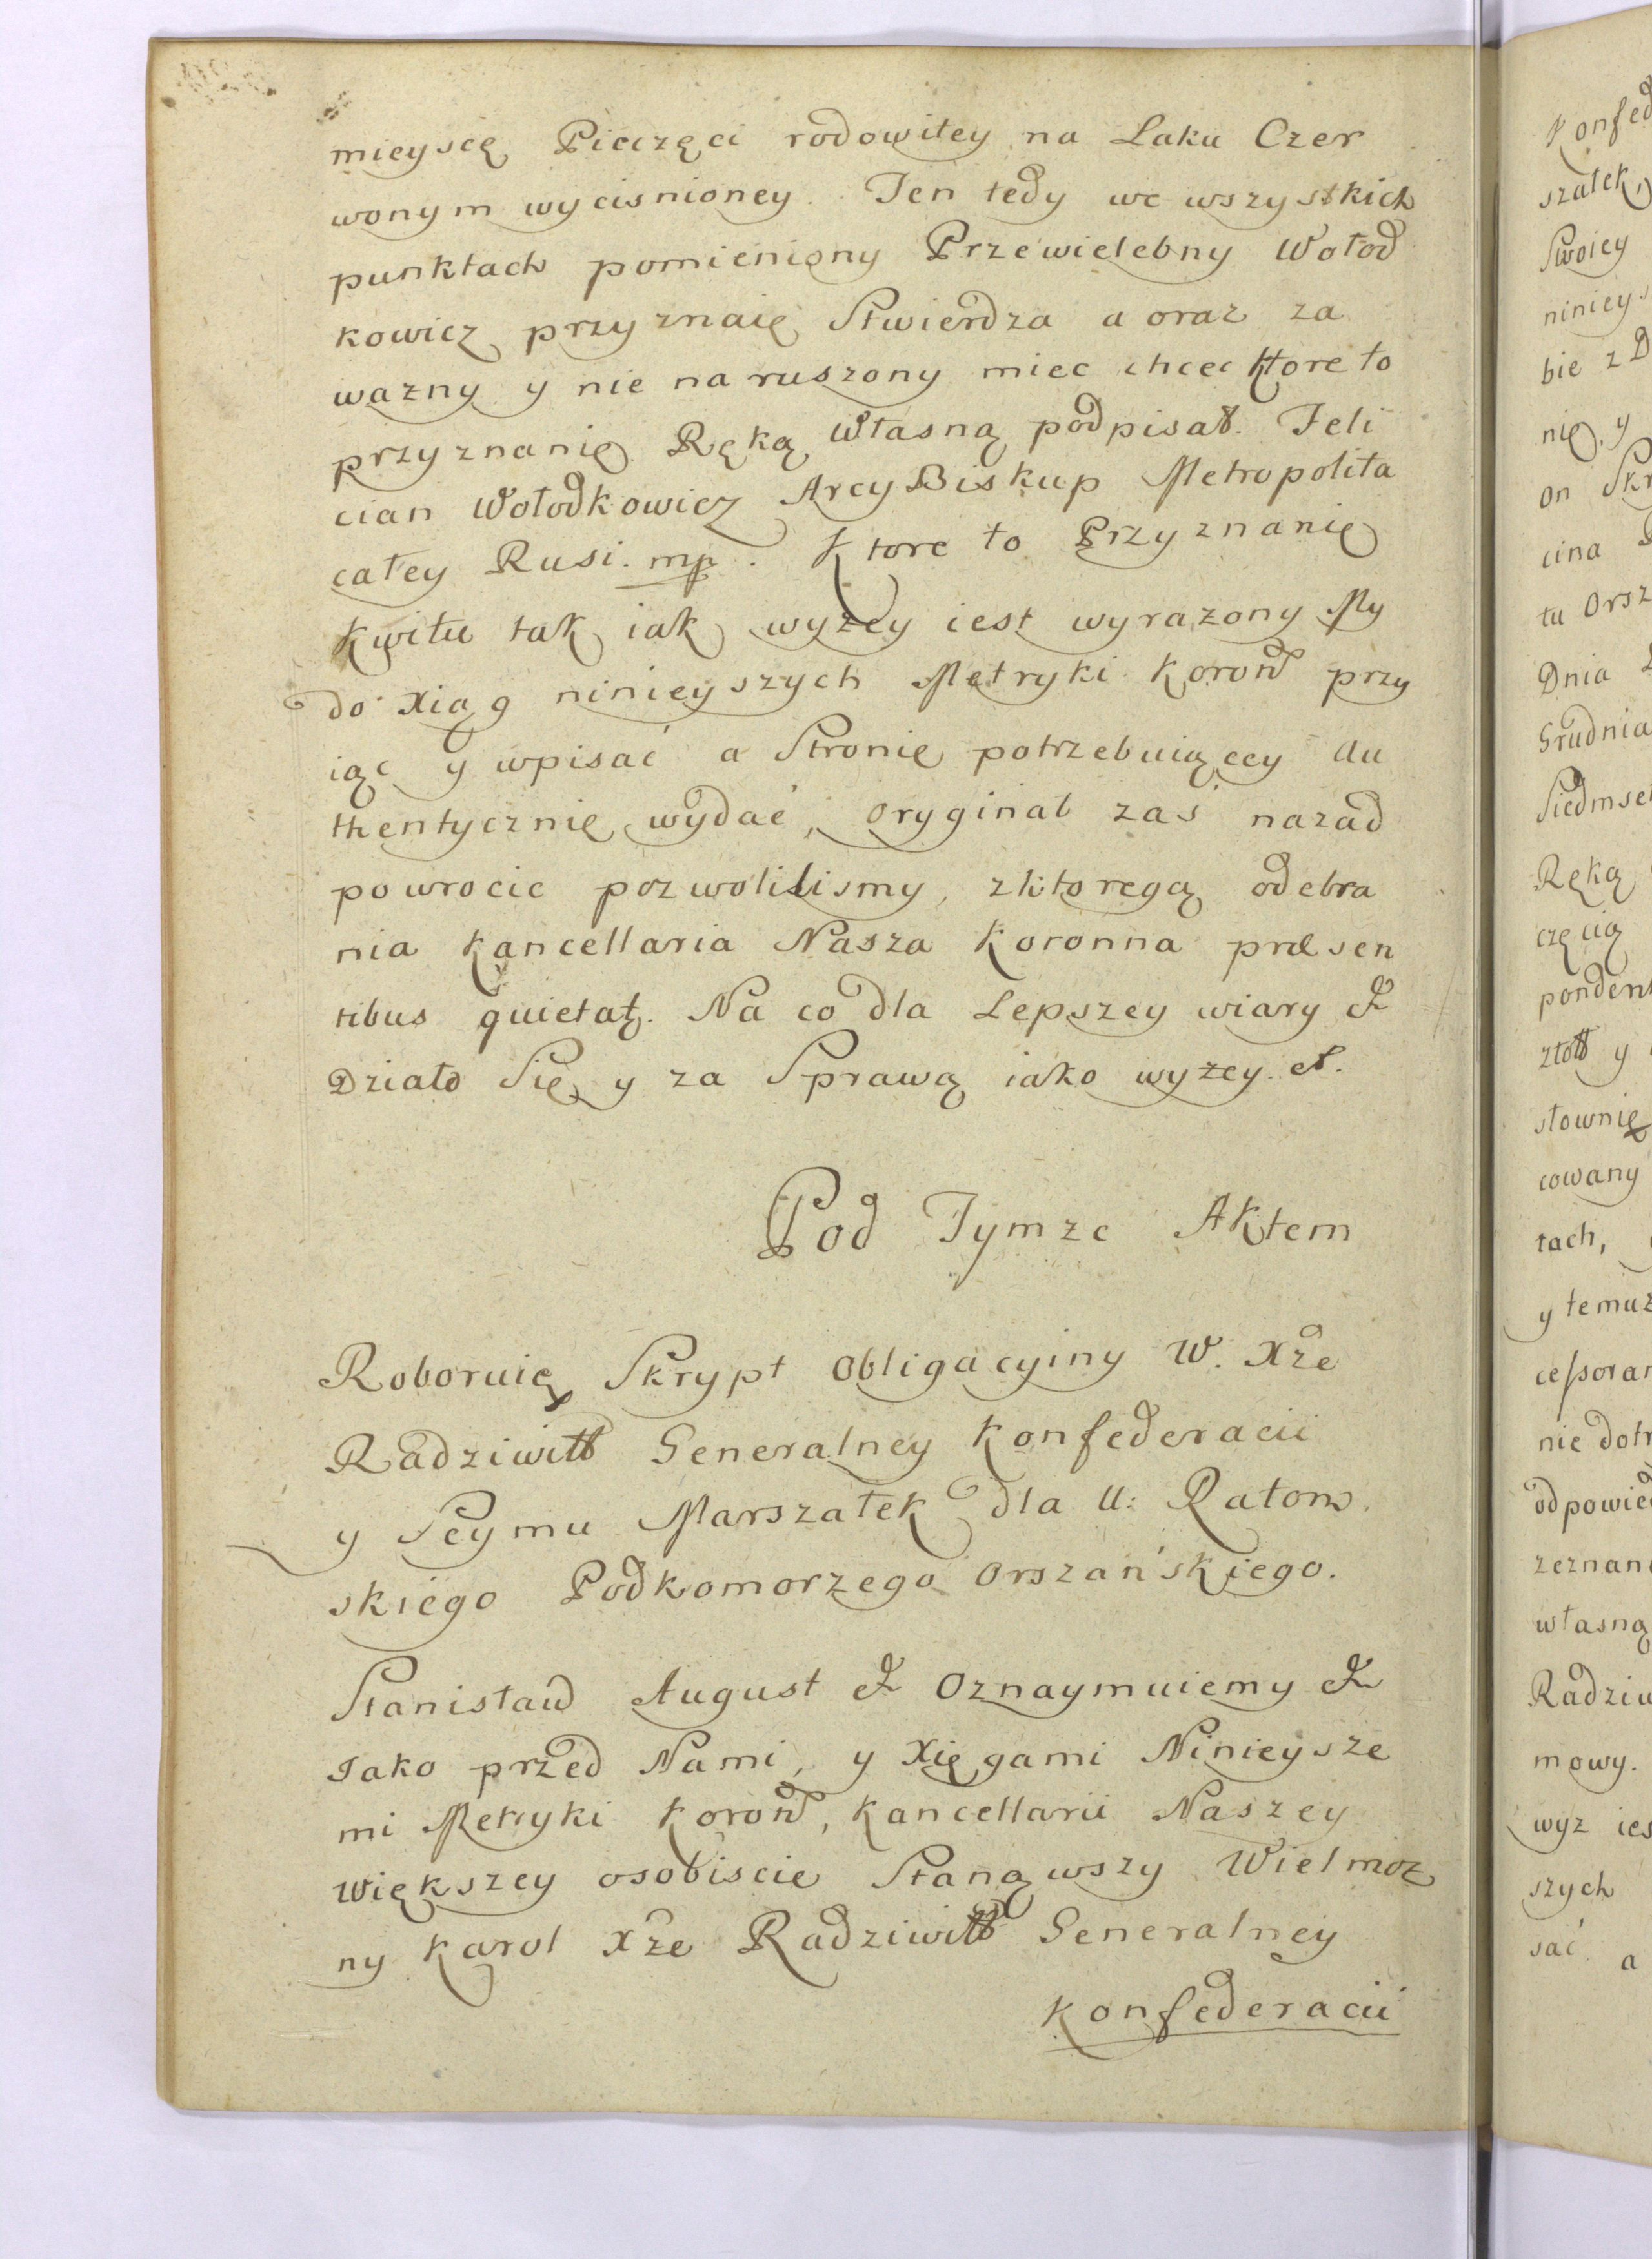 mieyscę Pieczęci rodowitey na Laku Czer
wonym wycisnioney. Ten tedy we wszystkich
punktach pomieniony Przewielebny Wołod
kowicz przyznaię Stwierdza a oraz za
wazny y nie naruszony miec chcec ktore to
przyznanię Ręką Własną podpisał. Feli
cian Wołodkowicz ArcyBiskup Metropolita
całey Rusi. mp. Ktore to Przyznanię
Kwitu tak iak wyżey iest wyrazony My
do Xiąg ninieyszych Metryki Koron przy
iąc y wpisać a Stronię potrzebuiącey Au
thentycznię wydać, oryginał zaś nazad
powrocic pozwolilismy, zktoregą odebra
nia Kancellaria Nasza Koronna præsen
tibus quietat. Na co dla Lepszey wiary &
Działo Się y za Sprawą iako wyżey. &.
Pod Tymze Aktem
Roboruię Skrypt obligacyiny W. Xże
Radziwiłł Generalney Konfederacii
y Seymu Marszałek dla U: Ratom
skiego Podkomorzego Orszańskiego.
Stanisław August & Oznaymuiemy &
Iako przed Nami, y Xięgami Ninieysze
mi Metryki Koron, Kancellarii Naszey
Większey osobiscie Stanąwszy Wielmoz
ny Karol Xże Radziwiłł Generalney
Konfederacii
Konfed
szałek,
Swoiey
nınieys
bie z D
nię, y
on Skr
cina
tu Orsz
Dnia
Grudnia
Siedmse
Ręką
częcią
ponden
złoł y
słownię
cowany
tach,
y temuz
cessoram
nie dotr
odpowied
zeznan
własną
Radziw
mowy.
wyz ies
szych
sać a